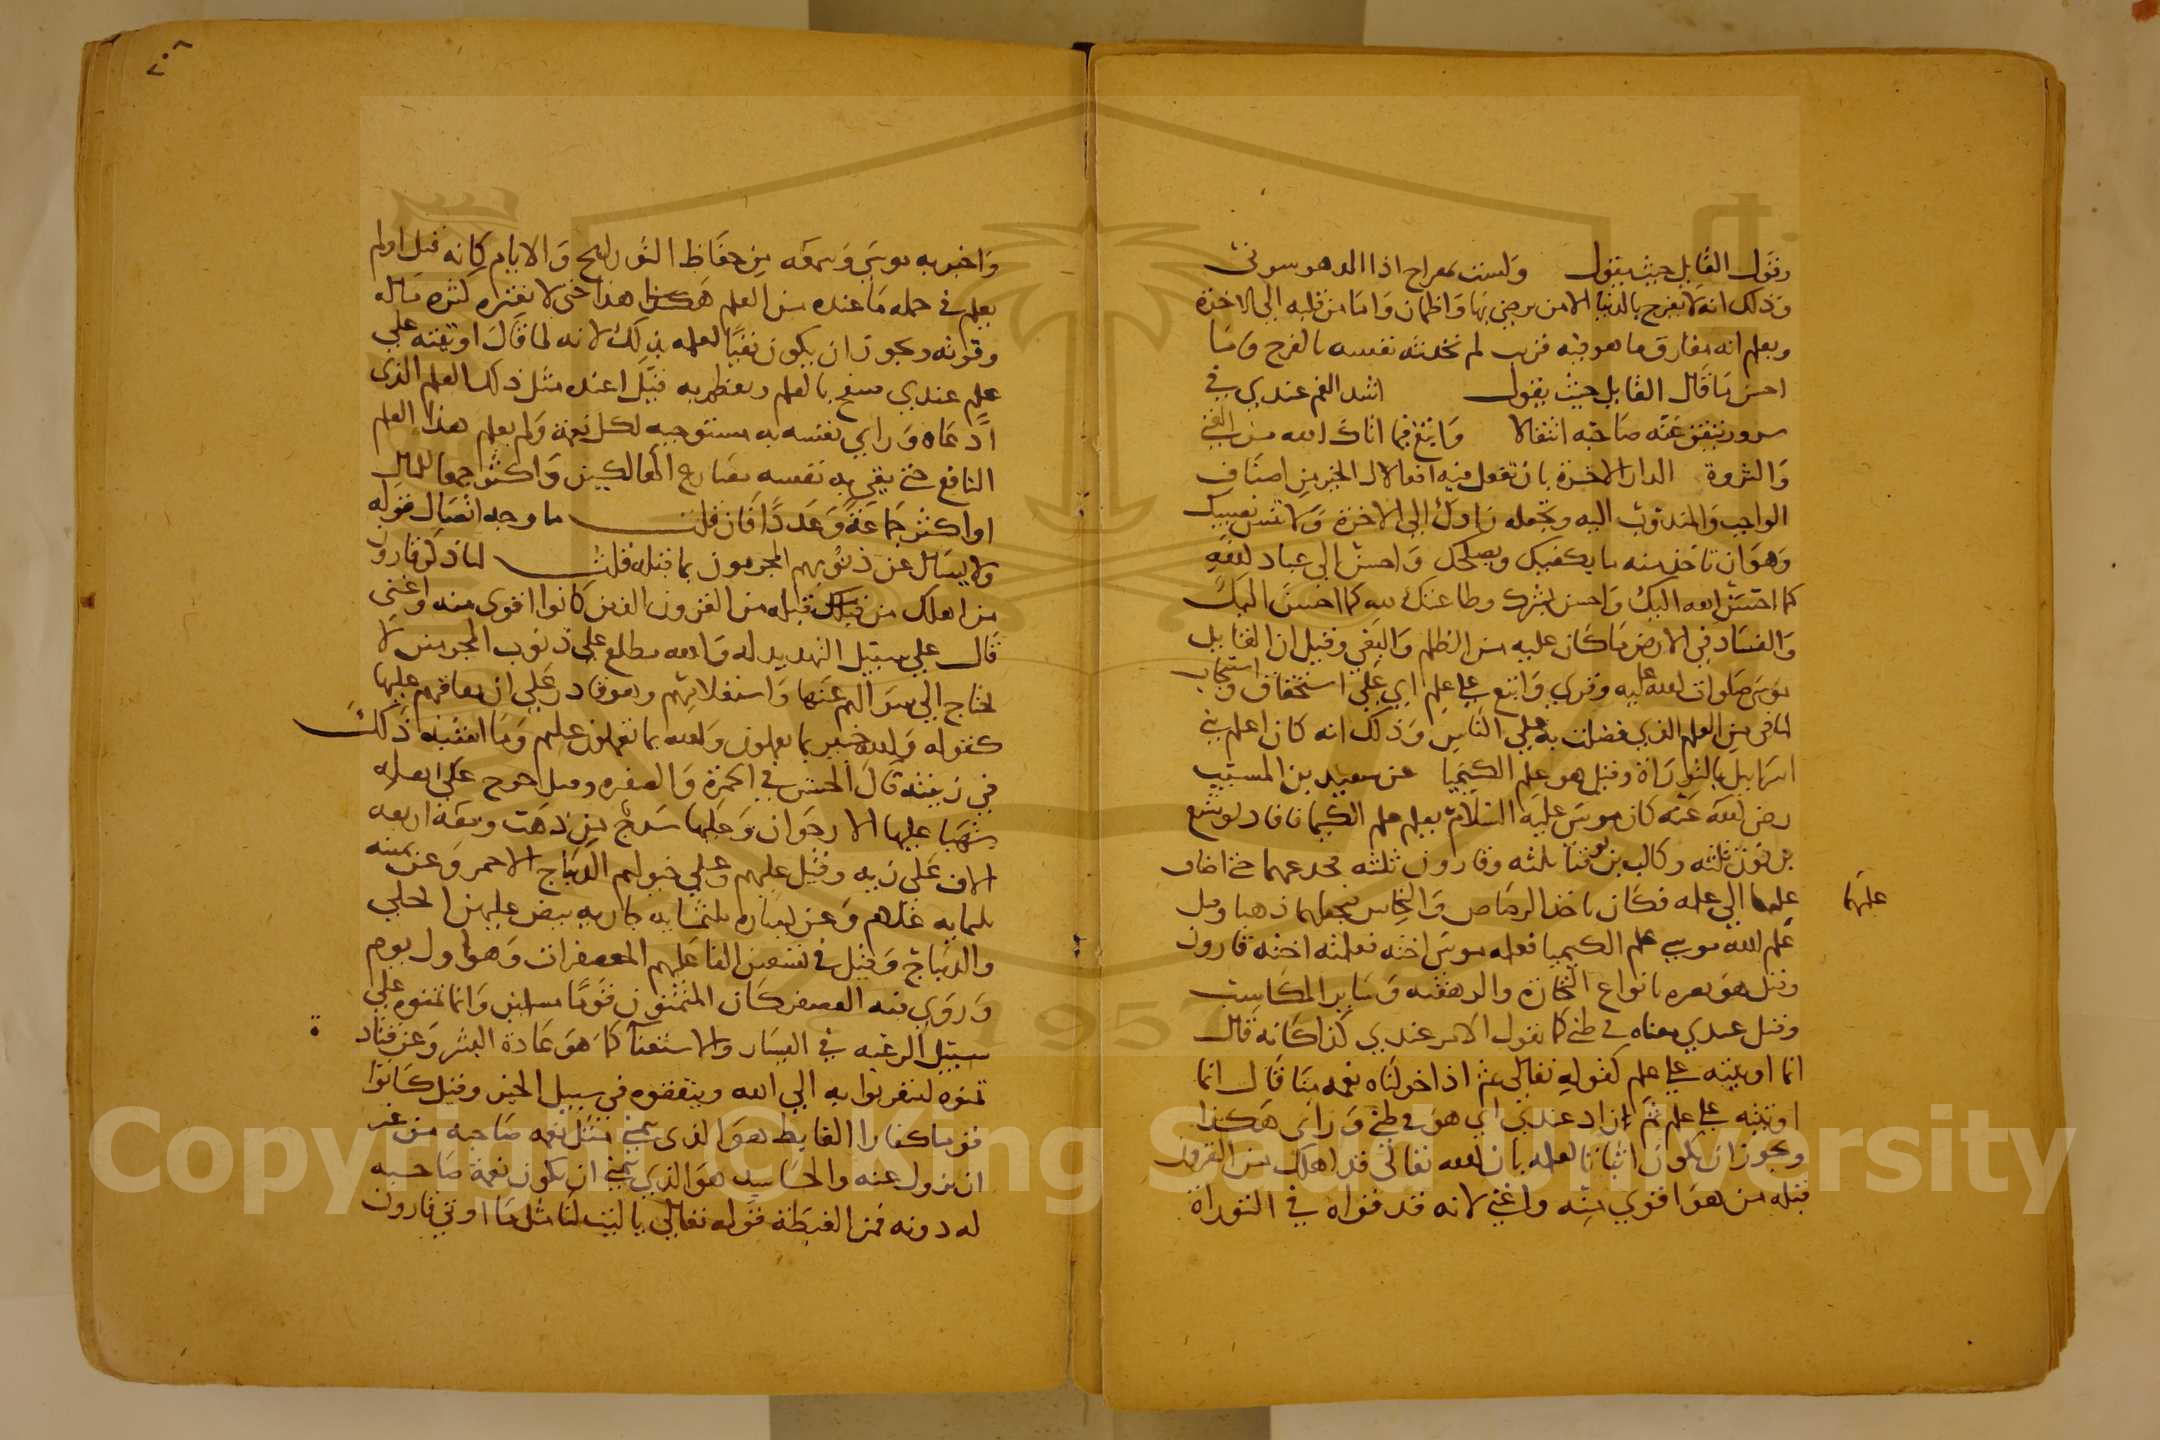 وقول القايل حيث يقول ولست بمفراح اذا الدهر سرني
وذلك انه لا يفرح بالدنيا الا من رضي بها واطمان واما من قلبه الي الاخرة
ويعلم انه مفارق ما هو فيه قريب لم تحدثه نفسه بالفرح وما
احسن ما قال القايل حيث يقول اشد الغم عندي في
سرور تيقن عنه صاحبه انتقالا وابتغ فيما اتاك الله من الغني
والثروة الدار الاخرة بان تفعل فيه افعال الخير من اصناف
الواجب والمندوب اليه وتجعله زادك الي الاخرة ولا تنس نصيبك
وهو ان تاخذ منه ما يكفيك ويصلحك واحسن الي عباد الله
كما احسن الله اليك واحسن بشرك وطاعتك لله كما احسن اليك
والفساد في الارض ما كان عليه من الظلم والبغي وقيل ان القايل
موسي صلوات الله عليه وقري واتبع علي علم اي علي استحقاق واستيجاب
لما في من العلم الذي فضلت به علي الناس وذلك انه كان اعلم بني
اسرايل بالتوراة وقيل هو علم الكيميا عن سعيد بن المسيب
رضي الله عنه كان موسي عليه السلام يعلم علم الكيميا فافاد يوشع
بن نون ثلثه وكالب بن يوقنا ثلثه وقارون ثلثه فخدعهما حتي اضاف
علمهما الي علمه فكان ياخذ الرصاص والنحاس فيجعلهما ذهبا وقيل
علم الله موسي علم الكيميا فعلمه موسي اخته فعلمته اخته قارون
وقيل هو بصره بانواع التجارة والدهقنه وساير المكاسب
وقيل عندي معناه في ظني كما تقول الامر عندي كذا كانه قال
انما اوتيته علي علم كقوله تعالي ثم اذا خولناه نعمه منا قال انما
اوتيته علي علم ثم زاد عندي اي هو في ظني ورايي هكذا
ويجوز ان يكون اثباتا لعلمه بان الله تعالي قد اهلك من القرون
قبله من هو اقوي منه واغني لانه قد قراه في التوراة
عليها
٢٠٨
واخبر به موسي وسمعه من حفاظ التواريخ والايام كانه قيل اولم
يعلم في جمله ما عنده من العلم هكذا هذا حتي لا يغتر بكثره ماله
وقوته ويجوز ان يكون نفيا لعلمه بذلك لانه لما قال اوتيته علي
علم عندي تنفج بالعلم وتعظم به قيل اعنده مثل ذلك العلم الذي
ادعاه وراي نفسه به مستوجبه لكل نعمة ولم يعلم هذا العلم
النافع حتي يقي به نفسه مصارع الهالكين واكثر جمعا للمال
او اكثر جماعة وعددا فان قلت ما وجه اتصال قوله
ولا يسال عن ذنوبهم المجرمون بما قبله قلت لما ذكر قارون
من اهلك من قبله من القرون الذين كانوا اقوي منه واغني
قال علي سبيل التهديد له والله مطلع علي ذنوب المجرمين لا
يحتاج الي سوالهم عنها واستعلامهم وهو قادر علي ان يعاقبهم عليها
كقوله والله خبير بما يعملون والله بما تعملون عليم وما اشبه ذلك
في زينته قال الحسن في الحمرة والصفره وقيل خرج علي بغله
شهبا عليها الارجوان وعليها سرج من ذهب ومعه اربعه
الاف علي زيه وقيل عليهم وعلي خيولهم الديباج الاحمر وعن يمينه
ثلثمايه غلام وعن يساره ثلثمايه جاريه بيض عليهن الحلي
والديباج وقيل في تسعين الفا عليهم المعصفرات وهو اول يوم
وروي فيه المعصفر كان المتمنون قوما مسلمين وانما تمنوه علي
سبيل الرغبه في اليسار والاستغنا كما هو عادة البشر وعن قتاده
تمنوه ليتقربوا به الي الله وينفقوه في سبيل الخير وقيل كانوا
قوما كفارا الغابط هو الذي يتمني مثل نعمه صاحبه من غير
ان تزول عنه والحاسد هو الذي يتمني ان تكون نعمة صاحبه
له دونه فمن الغبطة قوله تعالي يا ليت لنا مثل ما اوتي قارون
Copyright © King Saud University
1957